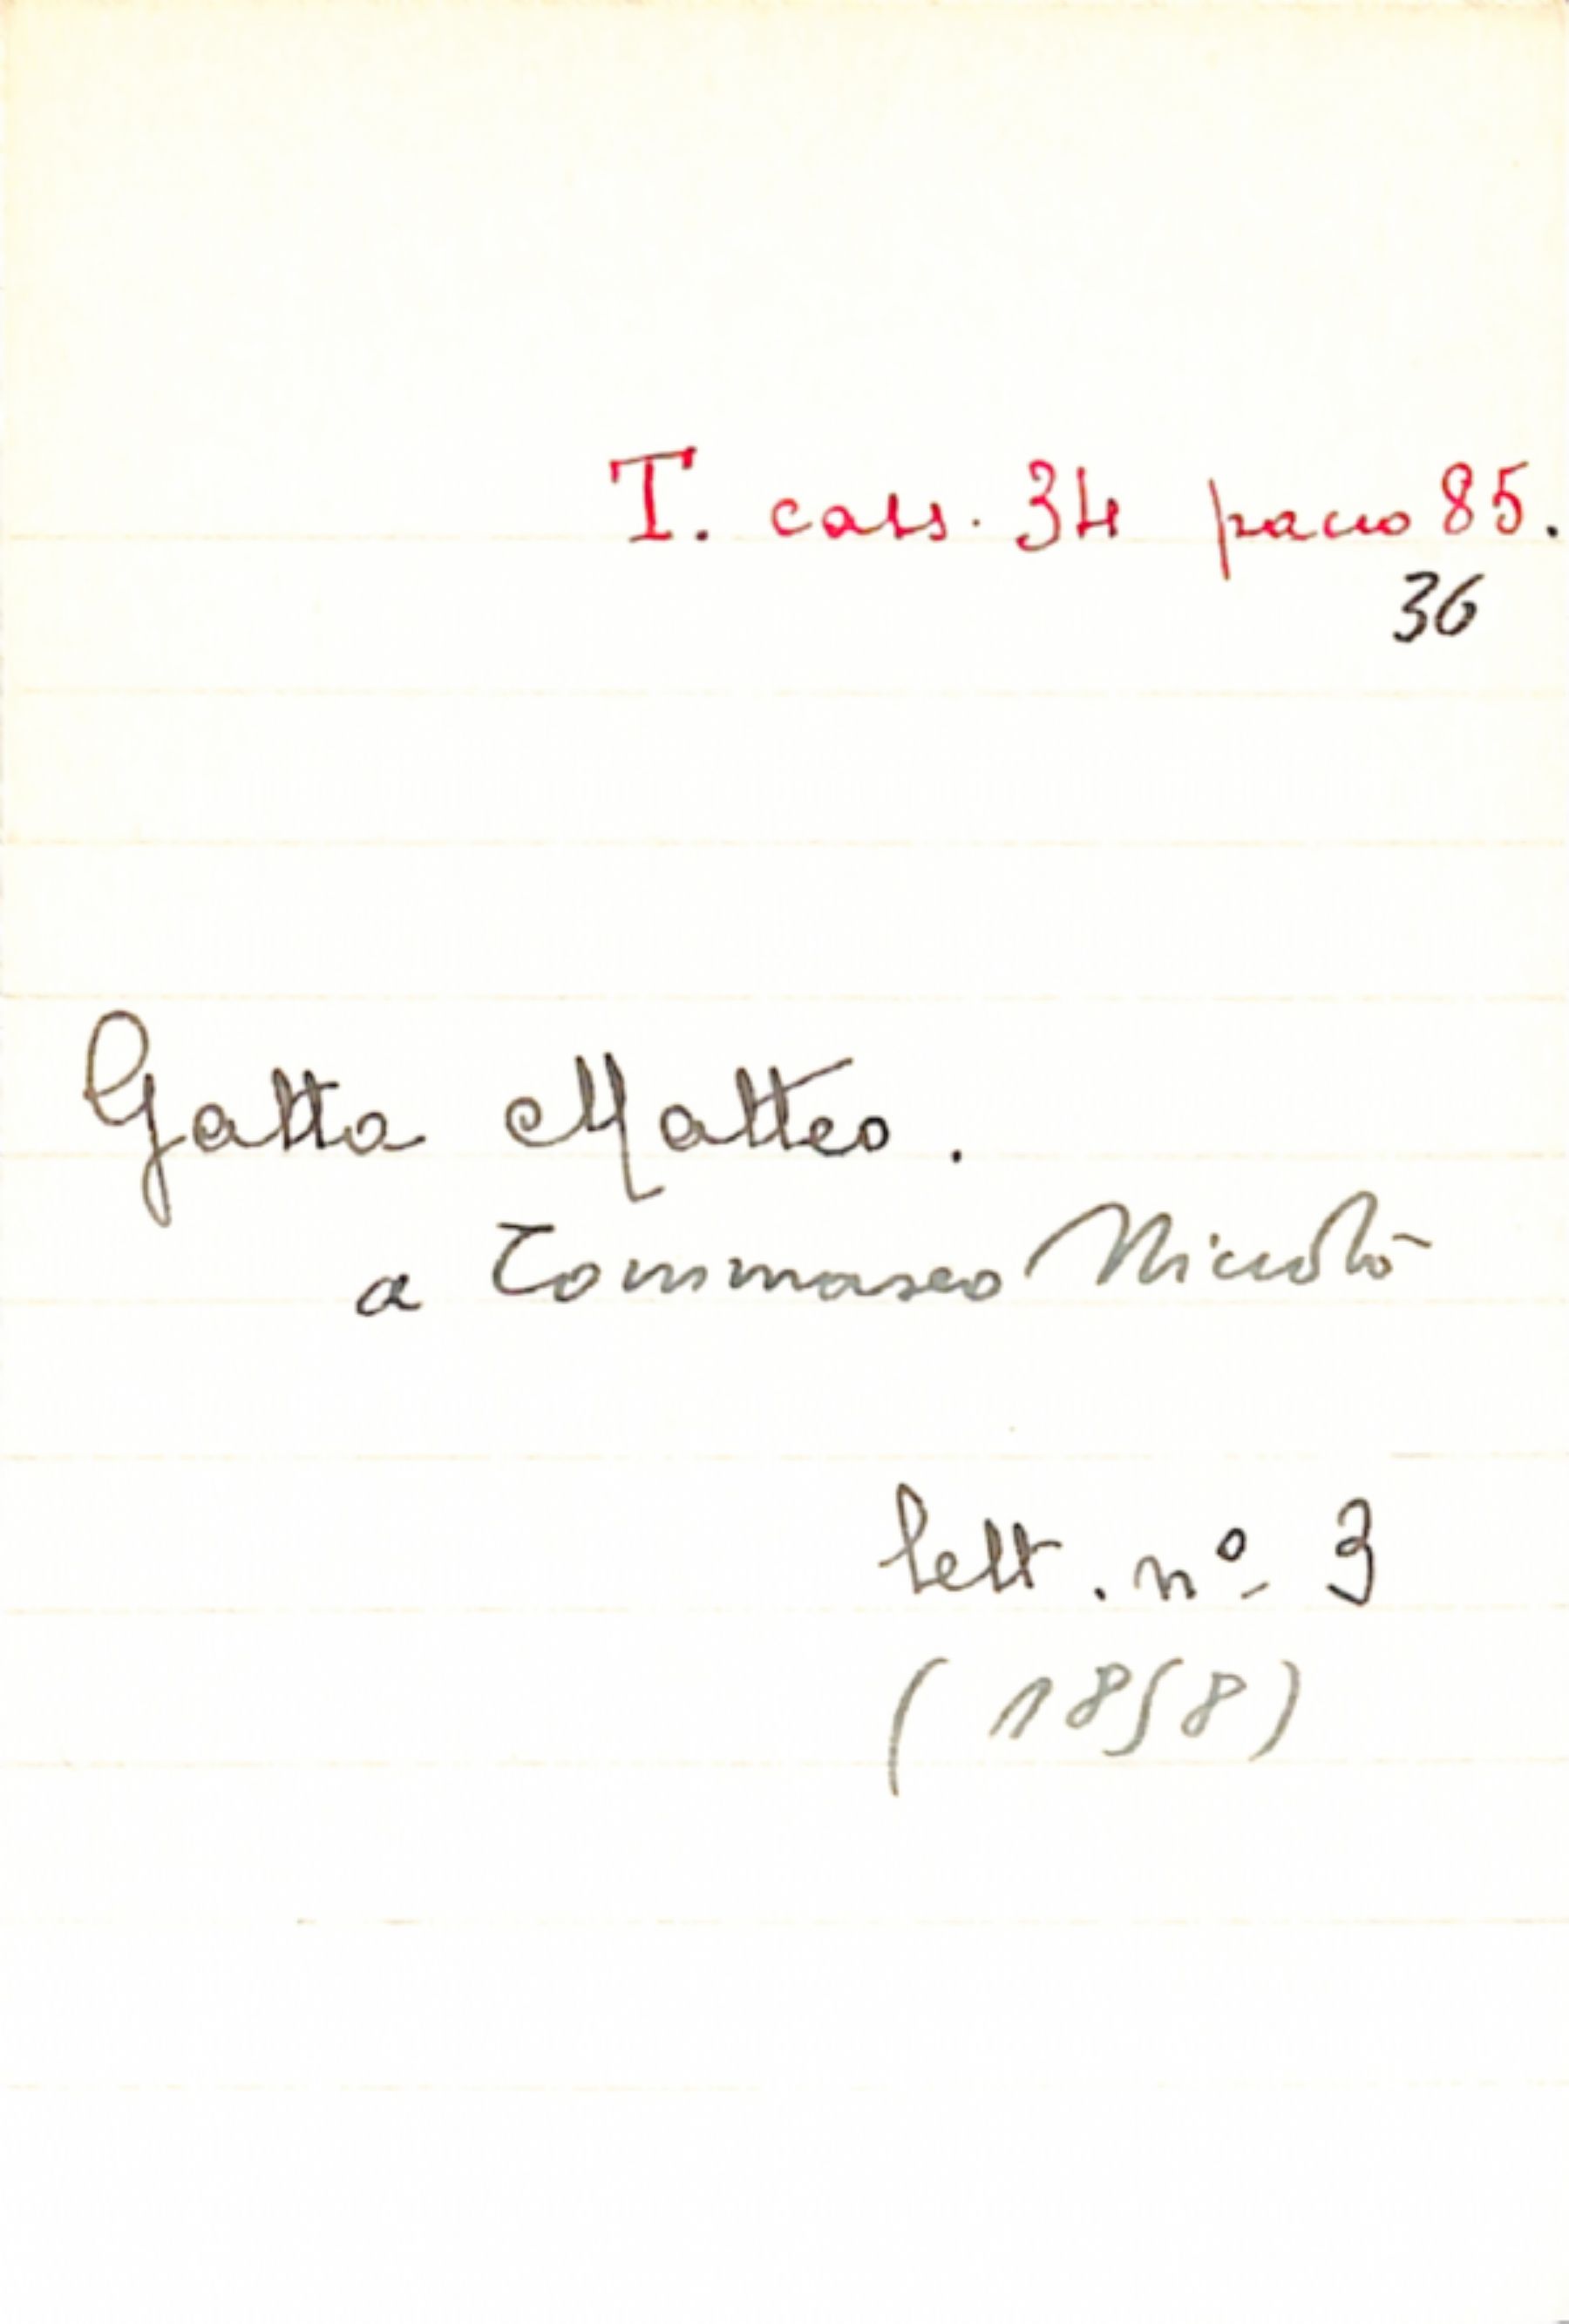 T. cass. 34 pacco 85.
36
Gatta Matteo.
a Tommaseo Niccolò
lett. nº 3
(1858)